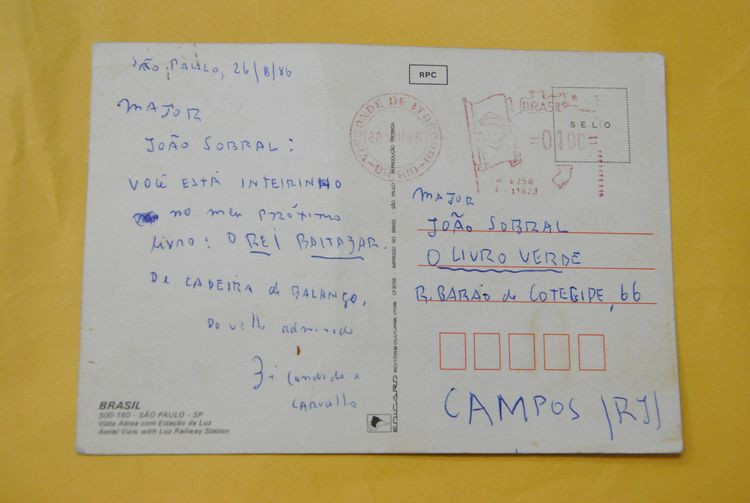 SÃO PAULO, 26/8/86
MAJOR
JOÃO SOBRAL:
VOCÊ ESTÁ INTEIRINHO
no meu PRÓXIMO
livro: O REI BALTAZAR.
De CADEIRA de BALANÇO,
Do velho admirado
Zé Candido
CARVALHO
BRASIL
500-160 - SÃO PAULO - SP
Vista Aérea com Estação da Luz
Aerial View with Luz Railway Station
RPC
VISCONDE DE
BRASIL
SELO
MAJOR
JOÃO SOBRAL
O LIVRO VERDE
R. BARÃO de COTEGIPE, 66
CAMPOS (RJ)
EDICARD EDITORA CULTURAL LTDA IMPRESSO NO BRASIL SÃO PAULO REPRODUÇÃO PROIBIDA